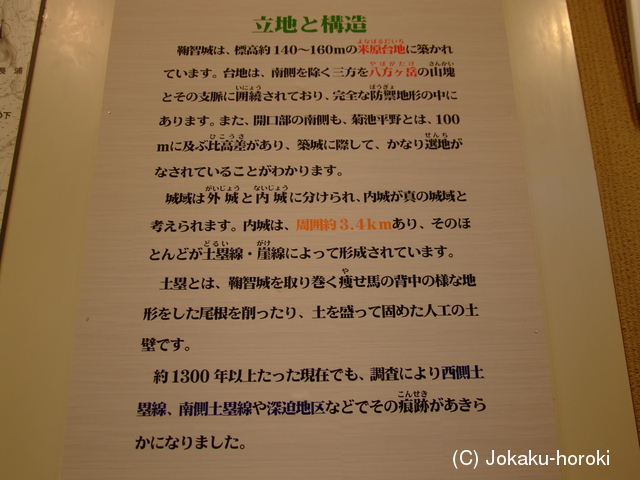 立地と構造
鞠智城は、標高約140~160mの米原台地に築かれ
ています。台地は、南側を除く三方を八方ヶ岳の山塊
とその支脈に囲繞されており、完全な防禦地形の中に
あります。また、開口部の南側も、菊池平野とは、100
mに及ぶ比高差があり、築城に際して、かなり選地が
なされていることがわかります。
城域は外城と内城に分けられ、内城が真の城域と
考えられます。内城は、周囲約3.4kmあり、そのほ
とんどが土塁線・崖線によって形成されています。
土塁とは、鞠智城を取り巻く痩せ馬の背中の様な地
形をした尾根を削ったり、土を盛って固めた人工の土
壁です。
約1300年以上たった現在でも、調査により西側土
塁線、南側土塁線や深迫地区などでその痕跡があきら
かになりました。
(C) Jokaku-horoki